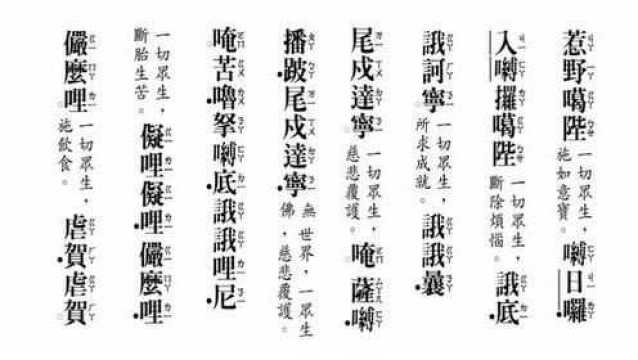 惹野噶陛一切眾生，施如意寶。㗚日囉
入㗚攞噶陛一切眾生，斷除煩惱。誐底
誐訶寧一切眾生，所求成就。誐誐曩
尾戍達寧一切眾生，慈悲覆護。唵薩㗚
播跛尾戍達寧無世界，一眾生佛，慈悲覆護。
唵苦嚕拏㗚底誐誐哩尼
一切眾生，斷胎生苦。儗哩儗哩儼麼哩
儼麼哩一切眾生，施飲食。虐賀虐賀